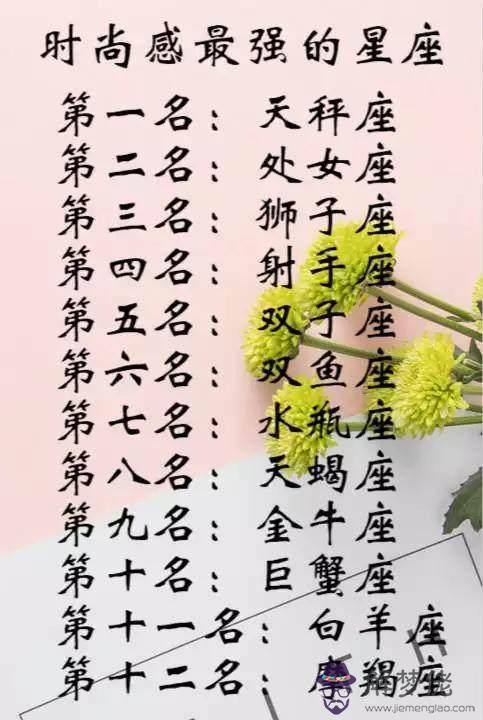 时尚感最强的星座
第一名：天秤座
第二名：处女座
第三名：狮子座
第四名：射手座
第五名：双子座
第六名：双鱼座
第七名：水瓶座
第八名：天蝎座
第九名：金牛座
第十名：巨蟹座
第十一名：白羊座
第十二名：摩羯座
解梦佬
www.jiemenglao.com